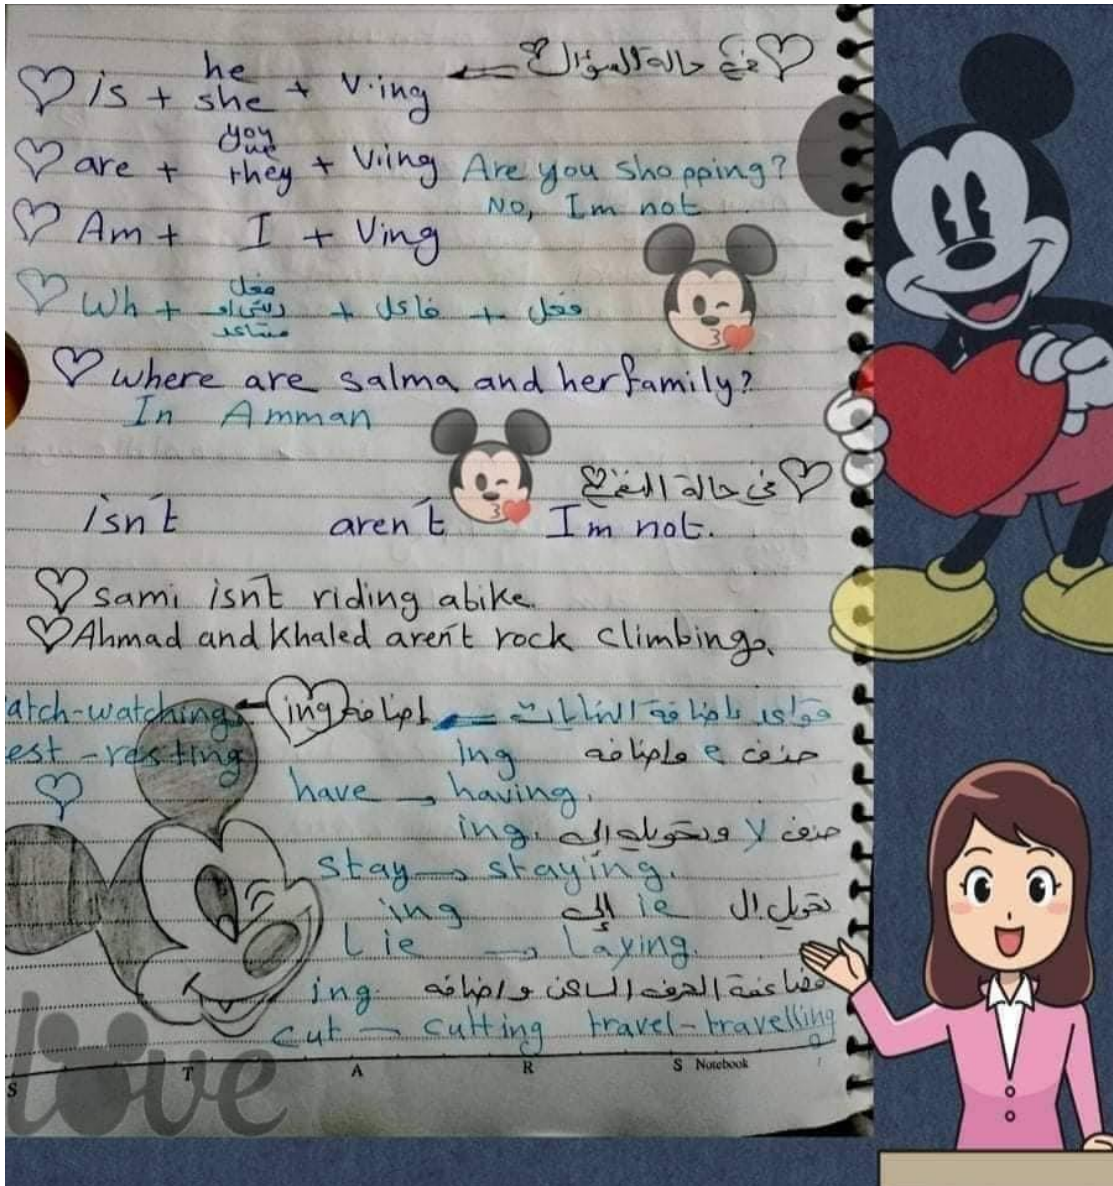 في حالة السؤال
he
is + she + V.ing
you
we
are + they + V.ing Are you shopping?
No, Im not
Am + I + Ving
فعل
رئيسي او
Wh + مساعد + فاعل + فعل
where are salma and her family?
In Amman
في حالة النفي
isn't aren't Im not.
sami isn't riding abike.
Ahmad and Khaled aren't rock climbing.
قواعد باضافة النهايات اضافة ing atch-watching
حذف e واضافه ing est-resting
have → having.
حذف y وتحويله إلى ing.
stay → staying.
تحويل ال ie إلى ing
Lie → Laying.
مضاعفة الحرف الساكن واضافه ing.
cut → cutting travel-travelling
love
S T A R S Notebook